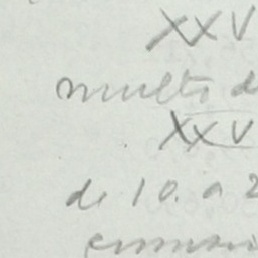 XXV
multi d
XXV
de 10. a 2